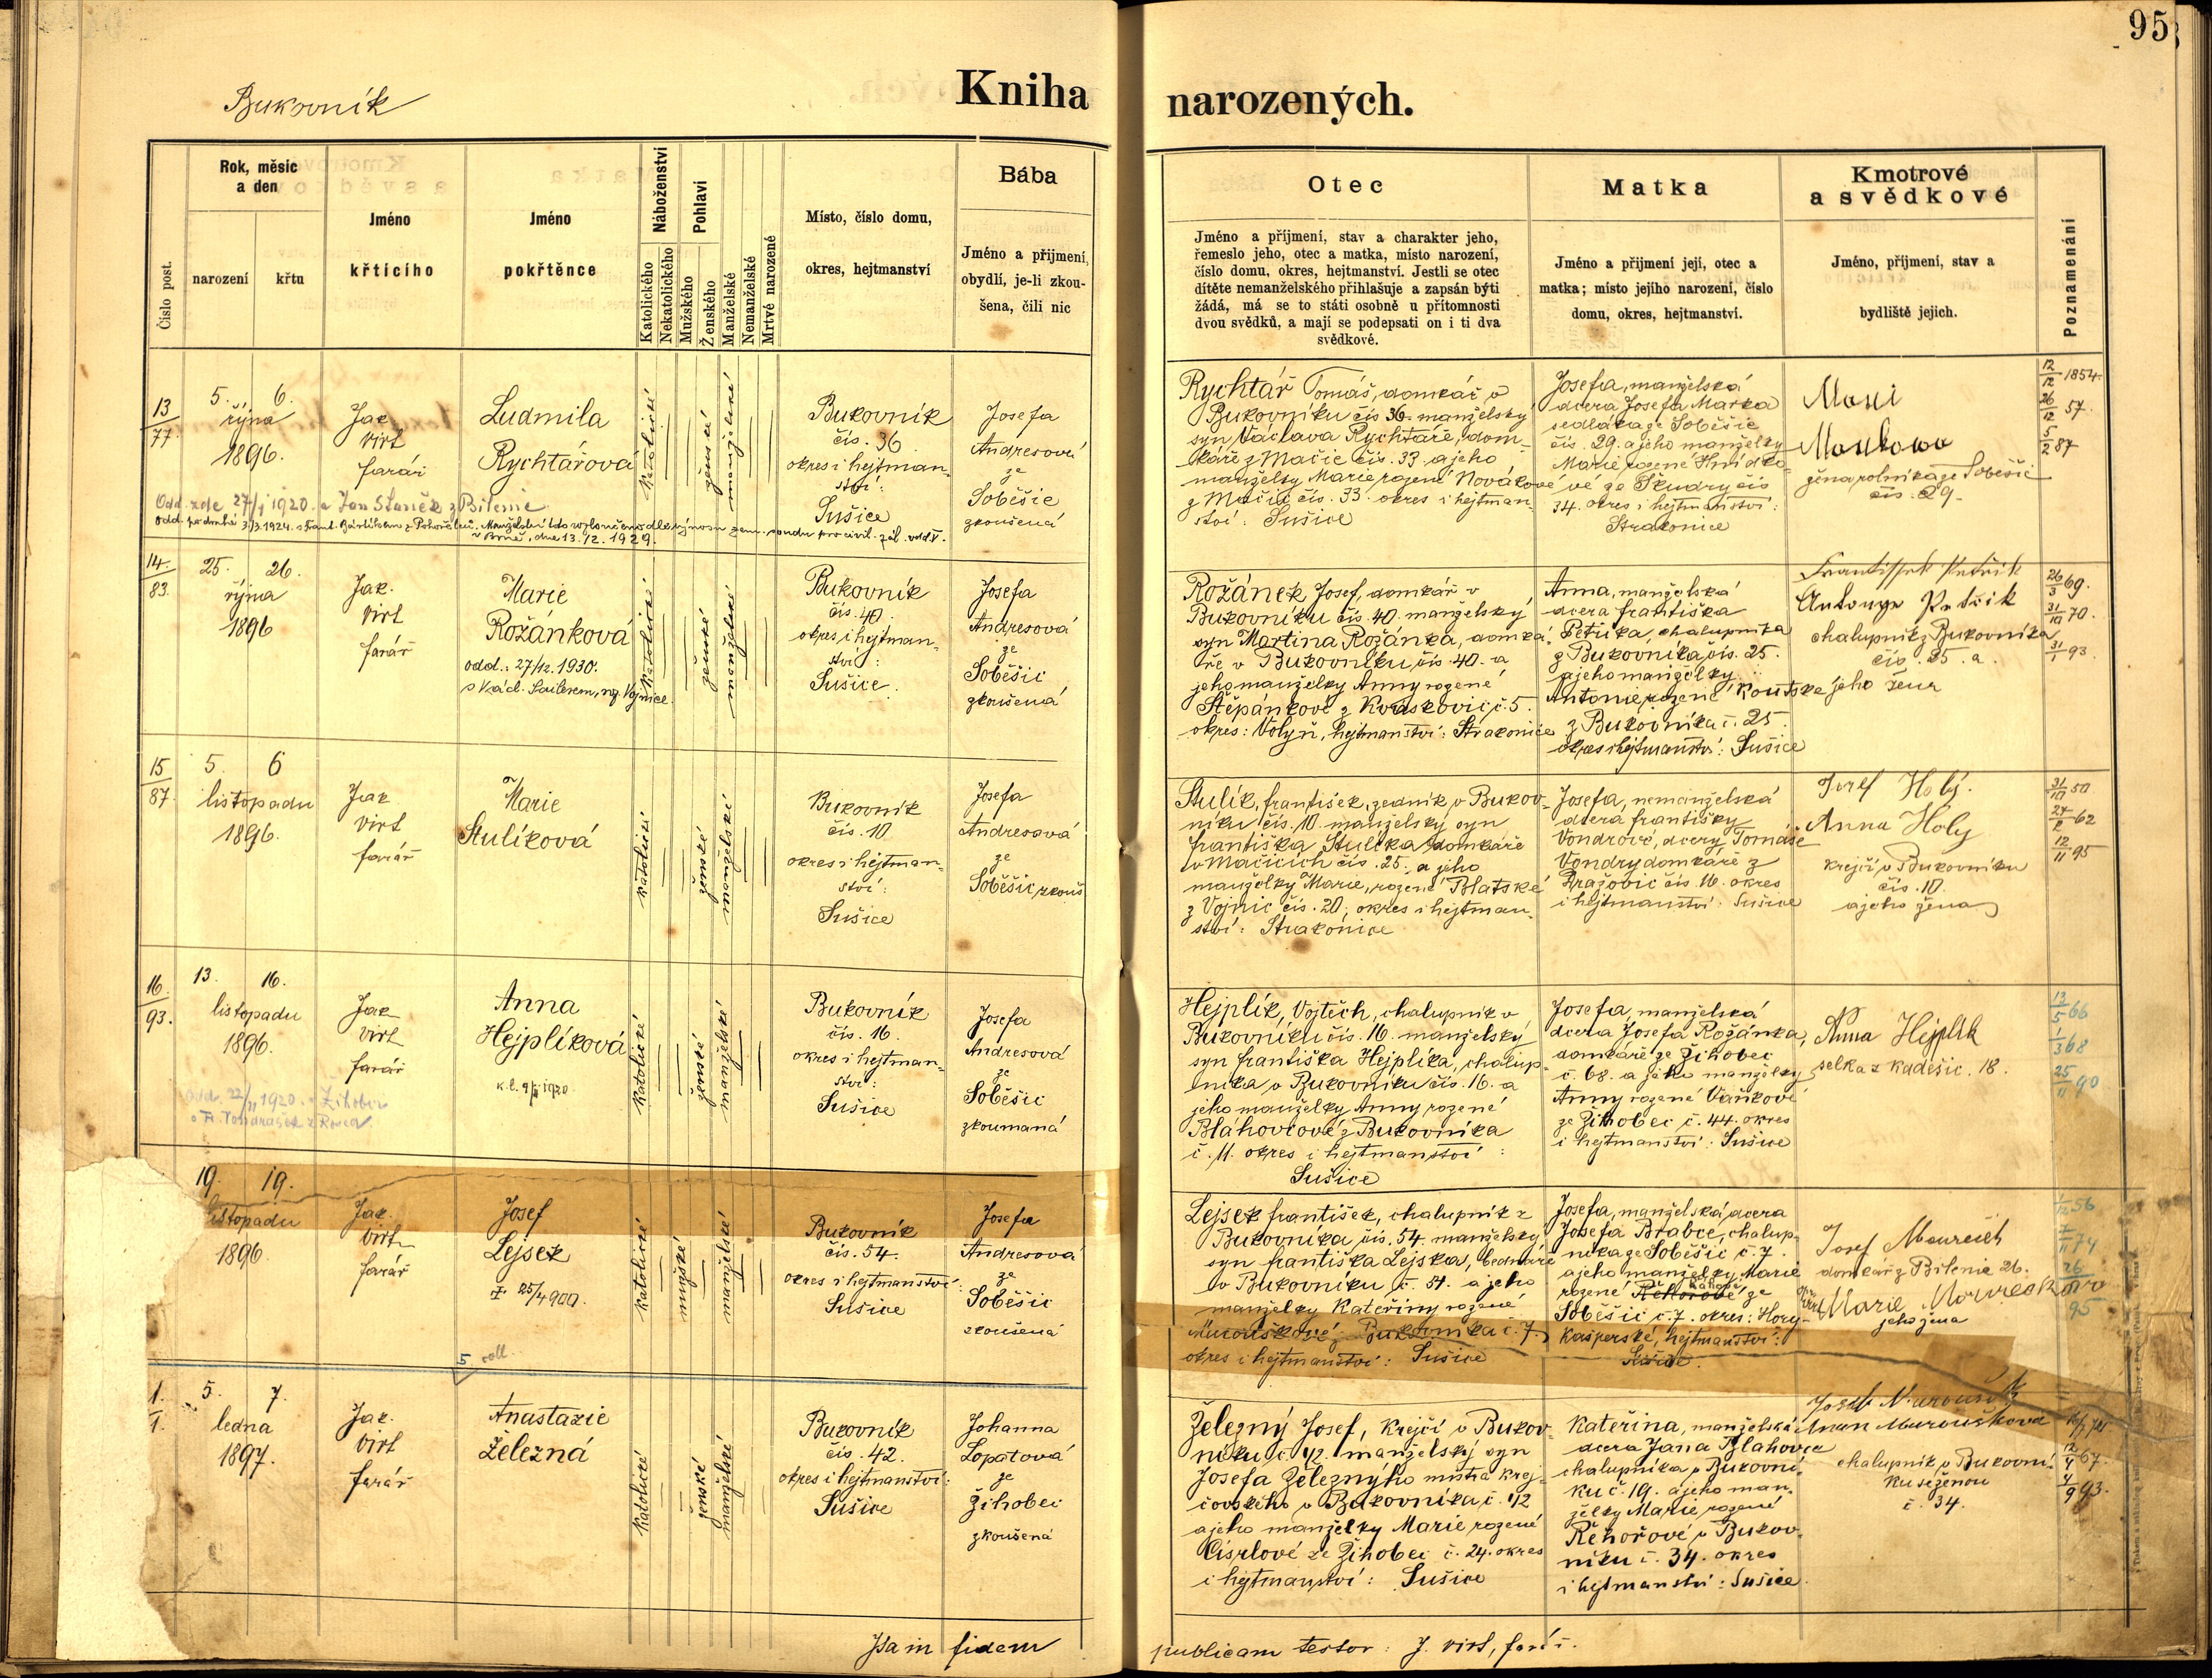 95
Bukovník
Kniha narozených.
Číslo post.
Rok, měsíc
a den
narození
křtu
Jméno
křtícího
Jméno
pokřtěnce
Náboženství
Katolického
Nekatolického
Pohlaví
Mužského
Ženského
Manželské
Nemanželské
Mrtvě narozené
Místo, číslo domu,
okres, hejtmanství
Bába
Jméno a příjmení,
obydlí, je-li zkou-
šena, čili nic
Otec
Jméno a příjmení, stav a charakter jeho,
řemeslo jeho, otec a matka, místo narození,
číslo domu, okres, hejtmanství. Jestli se otec
dítěte nemanželského přihlašuje a zapsán býti
žádá, má se to státi osobně u přítomnosti
dvou svědků, a mají se podepsati on i ti dva
svědkové.
Matka
Jméno a příjmení její, otec a
matka; místo jejího narození, číslo
domu, okres, hejtmanství.
Kmotrové
a svědkové
Jméno, příjmení, stav a
bydliště jejich.
Poznamenání
13
77.
5. 6.
října
1896.
Jak.
Virt
farář
Ludmila
Rychtářová
katolické
ženské
manželské
Bukovník
čís. 36
okres i hejtman-
ství:
Sušice
Josefa
Andresová
ze
Soběšic
zkoušená
Odd. zde 27/1 1920. s Jan Staněk z Bílenic
odd. po druhé 3/3.1924. s Frant. Bártíkem z Pohořelců. Manželství toto rozloučeno dle výnosu zem. soudu pro civil. zál. odd. V.
v Brně, dne 13.12.1929.
Rychtář Tomáš, domkář v
Bukovníku čís 36 manželský
syn Václava Rychtáře, dom-
káře z Mačic čís. 33. a jeho
manželky Marie rozené Novákové
z Mačic čís. 33. okres i hejtman-
ství: Sušice
Josefa, manželská
dcera Josefa Marka
sedláka ze Soběšic
čís. 29. a jeho manželky
Marie rozené Hnídko-
vé ze Škudry čís
34. okres i hejtmanství:
Strakonice
Maxi
Markowa
žena rolníka ze Soběšic
čís. 29.
12/12 1854.
26/12 57.
5/2 87
14.
83.
25. 26.
října
1896
Jak.
Virt
farář
Marie
Rožánková
odd.: 27/12. 1930.
s Václ. Sailerem, na Vojnice.
katolické
ženské
manželské
Bukovník
čís. 40.
okres i hejtman-
ství:
Sušice.
Josefa
Andresová
ze
Soběšic
zkoušená
Rožánek Josef, domkář v
Bukovníku čís. 40. manželský
syn Martina Rožánka, domká-
ře v Bukovníku čís. 40. a
jeho manželky Anny rozené
Štěpánkové z Kraskovic č. 5.
okres: Volyň, hejtmanství: Strakonice
Anna, manželská
dcera františka
Petříka, chalupníka
z Bukovníka, čís. 25.
a jeho manželky
Antonie, rozené Koutské
z Bukovníka č. 25.
okres i hejtmanství: Sušice
Frantissek Petřik
Antonye Petřik
chalupník z Bukovníka
čís. 25. a
jeho žena
26/3 69.
31/10 70.
31/1 93.
15
87.
5. 6
listopadu
1896.
Jak
Virt
farář
Marie
Stulíková
katolické
ženské
manželské
Bukovník
čís. 10
okres i hejtman-
ství:
Sušice
Josefa
Andresová
ze
Soběšic zkouš
Stulík, františek, zedník v Bukov-
níku čís. 10. manželský syn
františka Stulíka domkáře
v Mačicích čís. 25. a jeho
manželky Marie, rozené Blatské
z Vojnic čís. 20; okres i hejtman-
ství: Strakonice
Josefa, nemanželská
dcera františky
Vondrové, dcery Tomáše
Vondry domkáře z
Dražovic čís 16. okres
i hejtmanství: Sušice
Josef Holý.
Anna Holy
krejčí v Bukovníku
čís. 10.
a jeho žena
31/10 50
62
12/11 95
16.
93.
13. 16.
listopadu
1896.
Jak
Virt
farář
Anna
Hejplíková
Odd. 22/11 1920. v Žihobci
katolické
ženské
manželské
Bukovník
čís. 16.
okres i hejtman-
ství:
Sušice
Josefa
Andresová
ze
Soběšic
zkoumaná
Hejplík, Vojtěch, chalupník v
Bukovníku čís. 16. manželský
syn františka Hejplíka, chalup-
níka v Bukovníku čís. 16. a
jeho manželky Anny rozené
Blahovcové z Bukovníka
č. 11. okres i hejtmanství:
Sušice
Josefa, manželská
dcera Josefa Rožánka,
domkáře ze Žihobec
č. 68. a jeho manželky
Anny rozené Vaňkové
ze Žihobec č. 44. okres
i hejtmanství: Sušice
Anna Hejplik
selka z Kadešic. 18.
13/5 66
1/3 68
25/11 90
19. 19.
listopadu
1896.
Jak.
Virt
farář
Josef
Lejsek
25/4 900.
katolické
mužské
manželské
Bukovník
čís. 54.
okres i hejtmanství:
Sušice
Josefa
Andresová
ze
Soběšic
zkoušená
Lejsek františek, chalupník z
Bukovníka čís. 54. manželský
syn františka Lejska, bednáře
v Bukovníku č. 54. a jeho
manželky Kateřiny rozené
Murouškové z Bukovníka č. 7.
okres i hejtmanství: Sušice
Josefa, manželská dcera
Josefa Brabce, chalup-
níka ze Soběšic č. 7.
a jeho manželky Marie
rozené Řehořové ze
Soběšic č. 7. okres: Hory-
Kašperské, hejtmanství:
Sušice.
Josef
domkář z Bílenic 26.
Marie
jeho žena
1/12 56
74
26
95
5 roll.
1.
1.
5. 7.
ledna
1897.
Jak.
Virt
farář
Anastazie
Železná
katolické
ženské
manželské
Bukovník
čís. 42.
okres i hejtmanství:
Sušice
Johanna
Lopatová
ze
Žihobec
zkoušená
Železný Josef, krejčí v Bukov-
níku č. 42. manželský syn
Josefa Železnýho mistra krej-
čovského v Bukovníku, č. 42
a jeho manželky Marie rozené
Císřlové ze Žihobec č. 24. okres
i hejtmanství: Sušice
Kateřina, manželská
dcera Jana Blahovce
chalupníka v Bukovní-
ku č. 19. a jeho man-
želky Marie, rozené
Řehořové v Bukov-
níku č. 34. okres
i hejtmanství: Sušice.
Josef Muroušek
Anna Muroušková
chalupník v Bukovní-
ku se ženou
č. 34.
12/4 67.
4/9 93.
Ita in fidem publicam testor: J. Virt, farář.